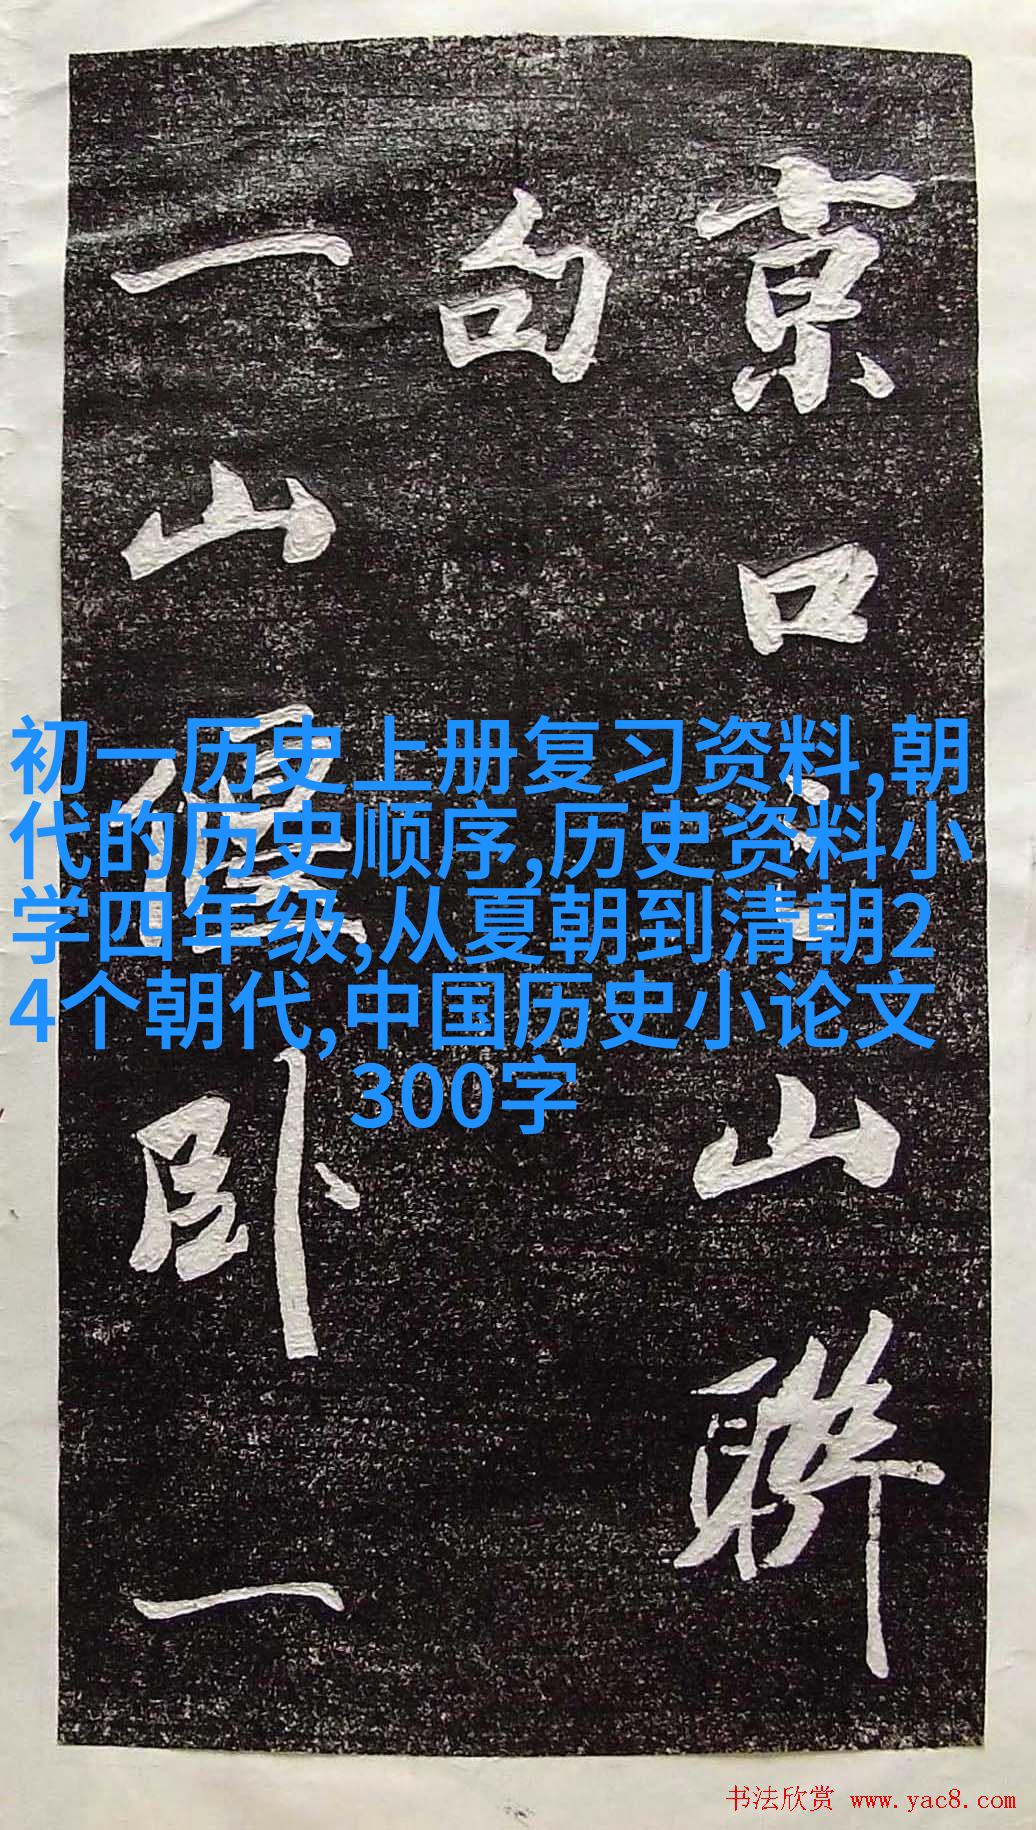 京口山聯
句
一山偃臥一
初一历史上册复习资料,朝
代的历史顺序,历史资料小
学四年级,从夏朝到清朝2
4个朝代,中国历史小论文
300字
书法欣赏 www.yac8.com